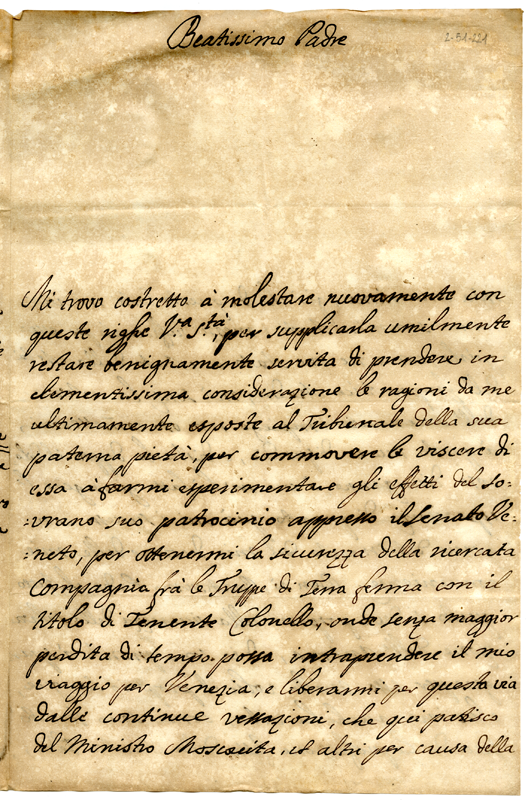 Beatissimo Padre
2-51-221
Mi trovo costretto à molestare nuovamente con
queste righe V.ra S.tà, per supplicarla umilmente
restare benignamente servita di prendere in
clementissima considerazione le ragioni da me
ultimamente esposte al Tribunale della sua
paterna pietà, per commovere le viscere di
essa à farmi esperimentare gli effetti del so-
:vrano suo patrocinio appresso il Senato Ve-
:neto, per ottenermi la sicurezza della ricercata
Compagnia frà le Truppe di Terra ferma con il
titolo di Tenente Colonello, onde senza maggior
perdita di tempo possa intraprendere il mio
viaggio per Venezia, e liberarmi per questa via
dalle continue vessazioni, che quì patisco
del Ministro Moscovita, et altri per causa della